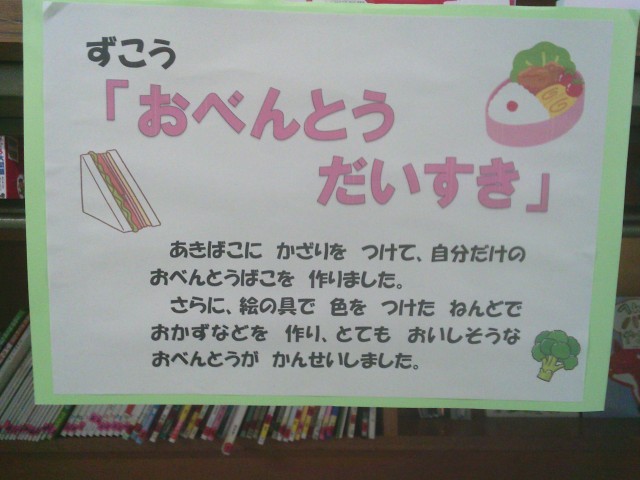 ずこう
「おべんとう
だいすき」
あきばこに かざりを つけて、自分だけの
おべんとうばこを 作りました。
さらに、絵の具で 色を つけた ねんどで
おかずなどを 作り、とても おいしそうな
おべんとうが かんせいしました。